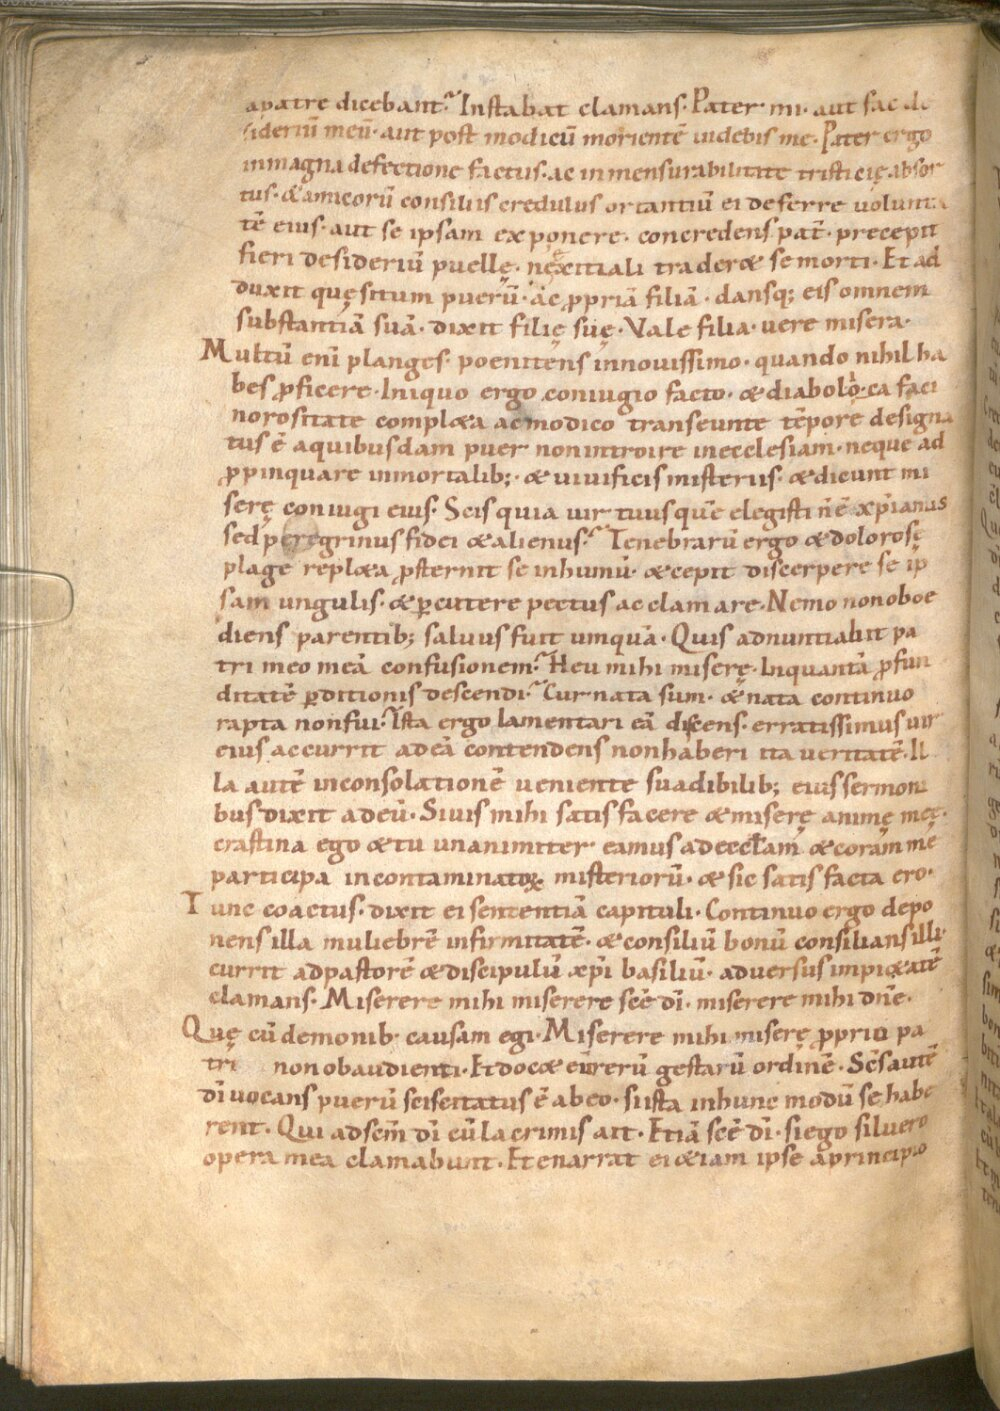 apatre dicebant. Instabat clamans. Pater mi. aut fac de
sideriū meū. aut post modicū morientē uidebis me. Pater ergo
inmagna defectione factus. ac inmensurabilitate tristicię absor
tus. & amicorū consiliis credulus ortantiū ei deferre uolunta
tē eius. aut se ipsam exponere. concredens pat̄. precepit
fieri desideriū puellę. ne exitiali trader& se morti. Et ad
duxit quęsitum puerū. ac p̄priā filiā. dansq; eis omnem
substantiā suā. dixit filię suę. Vale filia. uere misera.
Multū eni planges. poenitens innouissimo. quando nihil ha
bes p̄ficere. Iniquo ergo coniugio facto. & diabolo ca faci
norositate compl&a ac modico transeunte tēpore designa
tus ē aquibusdam puer non introire inecclesiam. neque ad
p̄pinquare inmortalib; & uiuificis misteriis. & dicunt mi
serę coniugi eius. Scis quia uir tuus quē elegisti n̄ ē xp̄ianus
sed peregrinus fidei & alienus. Tenebrarū ergo & dolorosę
plage repl&a p̄sternit se inhumū. & cepit discerpere se ip
sam ungulis. & p̄cutere pectus ac clamare. Nemo non oboe
diens parentib; saluus fuit umquā. Quis adnuntiabit pa
tri meo meā confusionem. Heu mihi miserę. Inquantā p̄fun
ditatē p̄ditionis descendi. Cur nata sum. & nata continuo
rapta non fui. Ista ergo lamentari eā discens. erratissimus uir
eius accurrit ad eā contendens non haberi ita ueritatē. Il
la autē inconsolationē ueniente suadibilib; eius sermoni
bus dixit ad eū. Si uis mihi satisfacere & miserę animę meę.
crastina ego & tu unanimiter eamus ad ecclam & coram me
participa incontaminatoꝝ misteriorū. & sic satisfacta ero.
Tunc coactus. dixit ei sententiā capituli. Continuo ergo depo
nens illa muliebrē infirmitatē. & consiliū bonū consilians illi.
currit ad pastorē & discipulū xp̄i basiliū. aduersus impi&atē
clamans. Miserere mihi miserere scē dī. miserere mihi dn̄e.
Quę cū demonib. causam egi. Miserere mihi miserę p̄prio pa
tri non obaudienti. Et doc& eū rerū gestarū ordinē. Sc̄s autē
dī uocans puerū sciscitatus ē ab eo. si ista in hunc modū se habe
rent. Qui ad scm̄ dī cū lacrimis ait. Etiā scē dī. si ego siluero
opera mea clamabunt. Et enarrat ei &iam ipse aprincipio